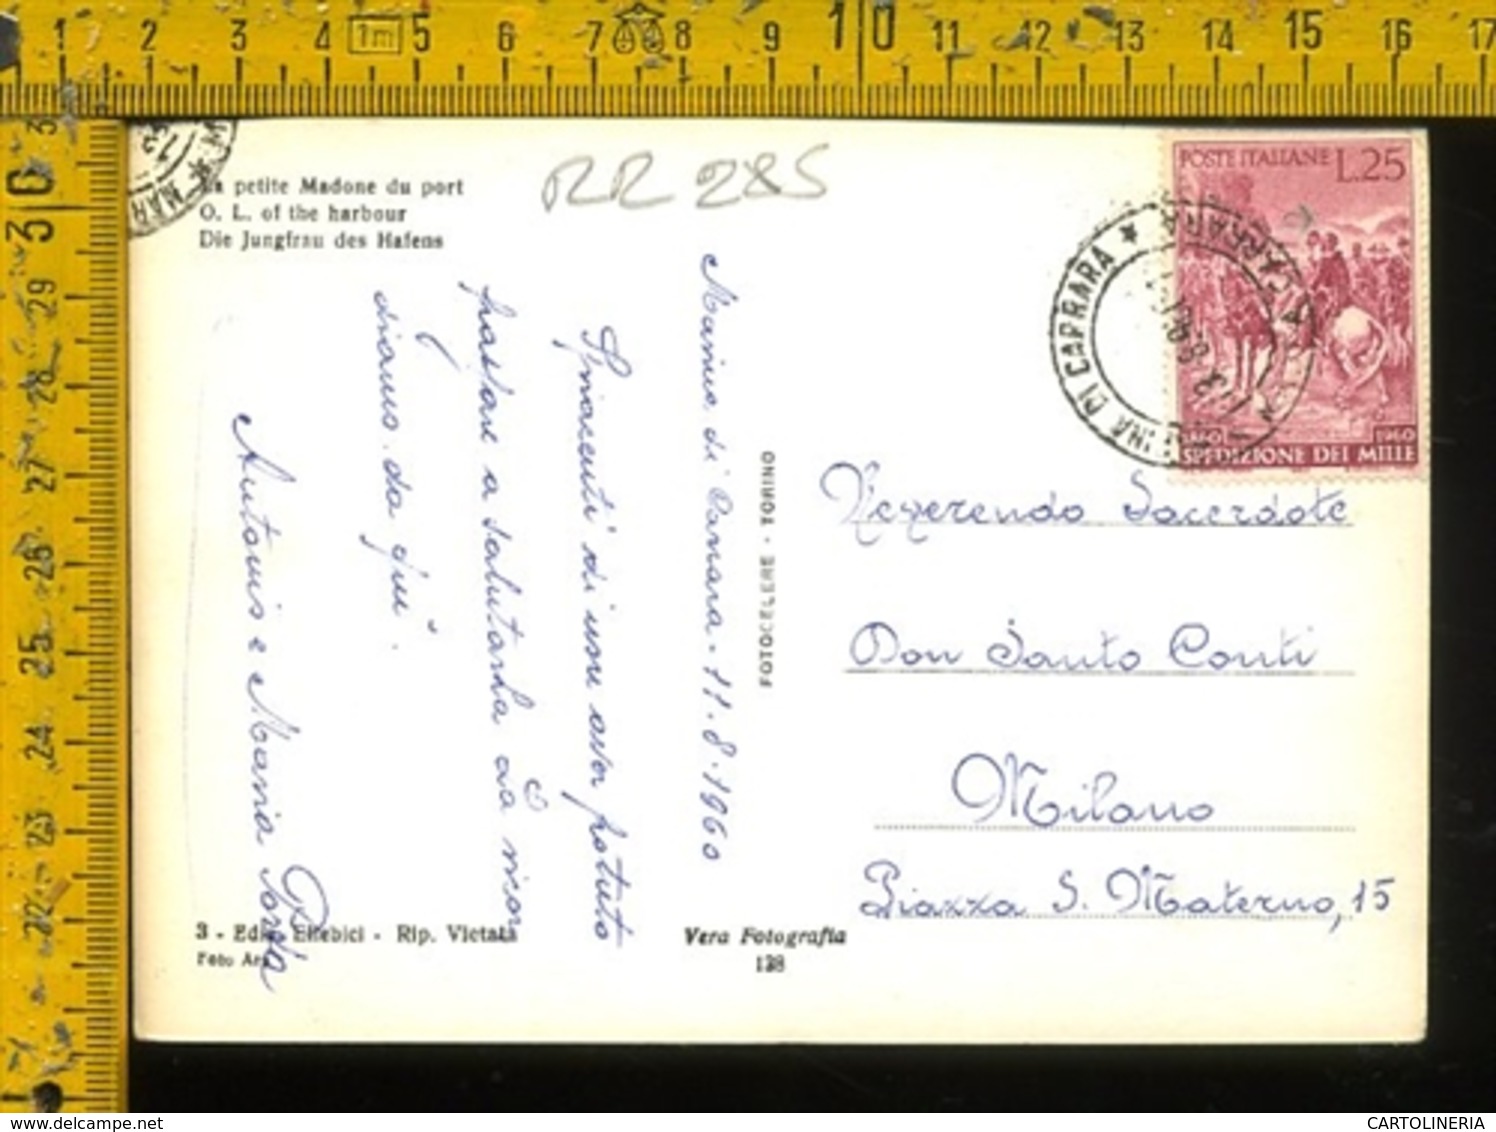 1 2 3 4 1m 5 6 7 8 9 10 11 12 13 14 15 16 17
30 29 28 27 26 25 24 23 22
La petite Madone du port
O. L. of the harbour
Die Jungfrau des Hafens
RR 285
POSTE ITALIANE L.25
1960
SPEDIZIONE DEI MILLE
DI CAPRARA *
Marina di Carrara - 11.8.1960
Spiacenti di non aver potuto
passare a salutarla La ricor
diamo da qui.
Antonio e Maria Porta
FOTOCELERE - TORINO
Reverendo Sacerdote
Don Santo Conti
Milano
Piazza S. Materno, 15
3 - Ediz. Ellebici - Rip. Vietata
Foto
Vera Fotografia
138
delcampe.net
CARTOLINERIA